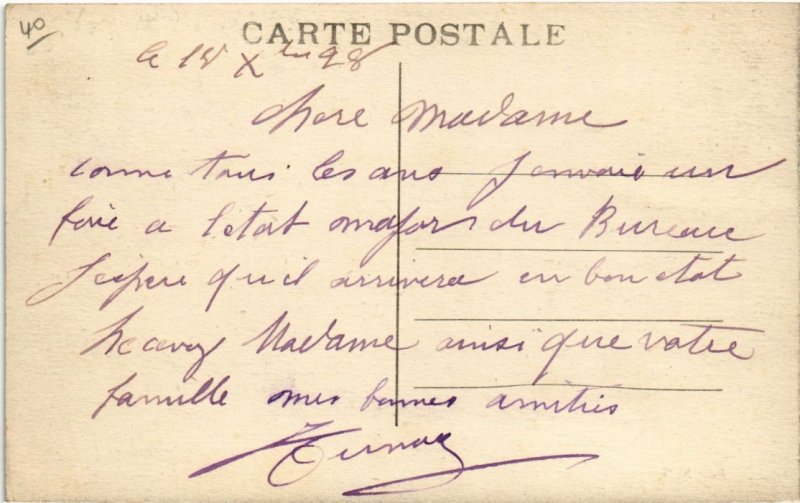 40
CARTE POSTALE
le 18 Xbre 28
chere Madame
comme tous les ans j'envoie un
foie a l'etat major du Bureau
J'espere qu'il arrivera en bon etat
Recevez Madame ainsi que votre
famille mes bonnes amities